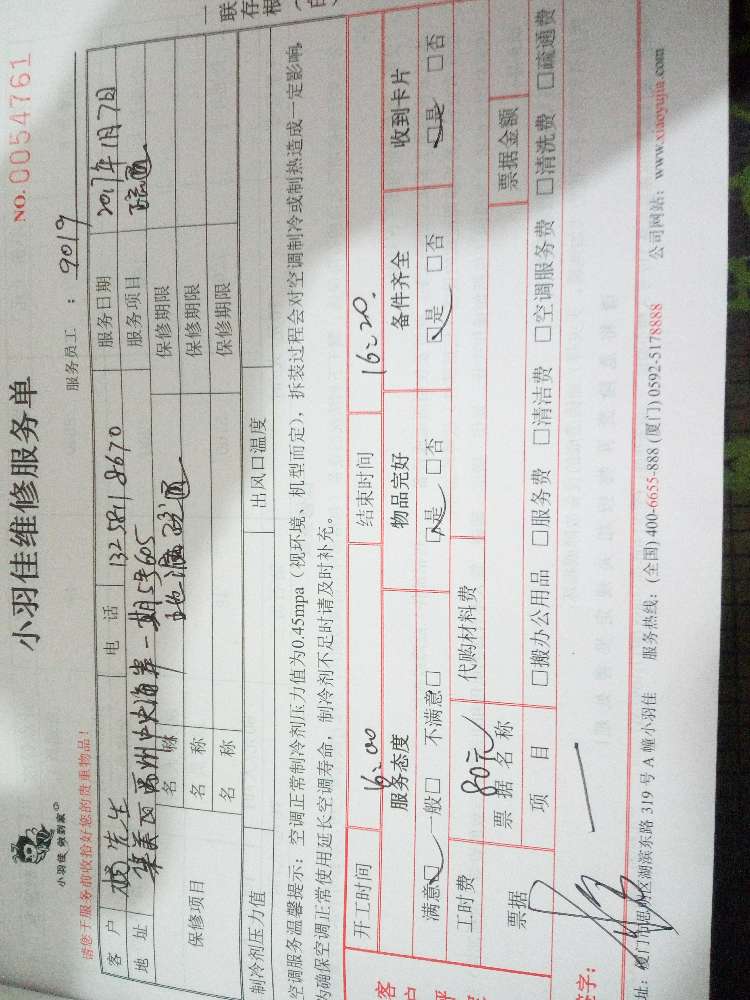 小羽佳 做到家
小羽佳维修服务单
NO.0054761
请您于服务前收拾好您的贵重物品！
服务员工：9019
一联存根
客户 杨先生 电话 13258118670 服务日期 2017年1月7日
地址 集美区禹州中央海岸一期5号605 服务项目 疏通
保修项目 名称 地漏疏通 保修期限
名称 保修期限
名称 保修期限
制冷剂压力值 出风口温度
空调服务温馨提示：空调正常制冷剂压力值为0.45mpa（视环境、机型而定），拆装过程会对空调制冷或制热造成一定影响，
为确保空调正常使用延长空调寿命，制冷剂不足时请及时补充。
开工时间 16:00 结束时间 16:20.
服务态度 物品完好 备件齐全 收到卡片
满意□ 一般□ 不满意□ □是 □否 □是 □否 □是 □否
工时费 80元 代购材料费
票据 票据名称 票据金额
项目 □搬办公用品 □服务费 □清洁费 □空调服务费 □清洗费 □疏通费
签字：
址：厦门市思明区湖滨东路 319 号 A 幢小羽佳 服务热线：(全国) 400-6655-888 (厦门) 0592-5178888 公司网站：www.xiaoyujia.com